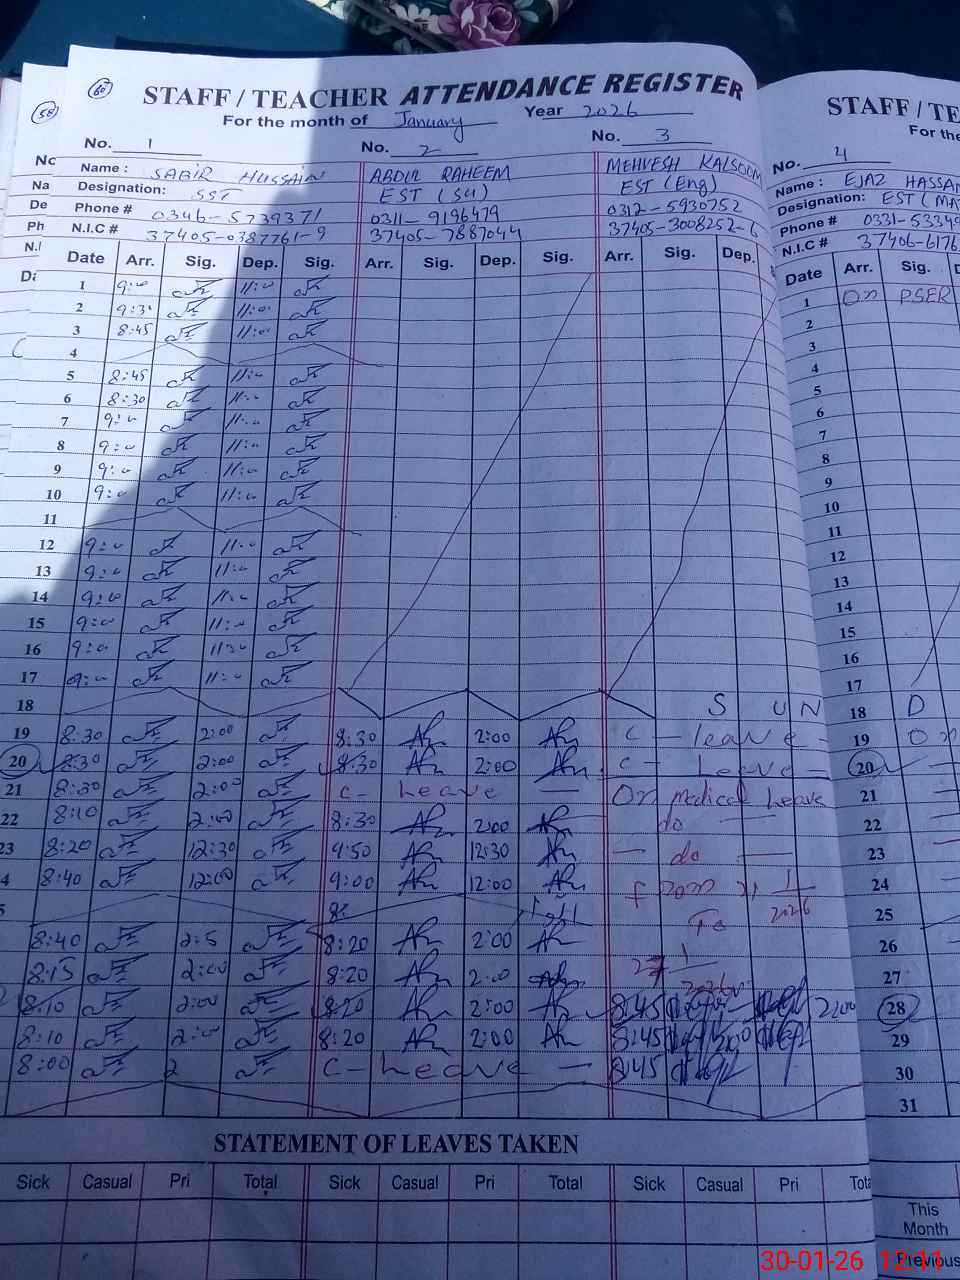 60
58
STAFF / TEACHER ATTENDANCE REGISTER
For the month of January Year 2026
No. 1 No. 2 No. 3
Name : SABIR HUSSAIN ABDUL RAHEEM MEHVESH KALSOOM
Designation: SST EST (Sci) EST (Eng)
Phone # 0346-5739371 0311-9196479 0312-5930752
N.I.C # 37405-0387761-9 37405-7887044 37405-3008252-6
Date Arr. Sig. Dep. Sig. Arr. Sig. Dep. Sig. Arr. Sig. Dep.
1 9:00 11:00
2 9:30 11:00
3 8:45 11:00
4
5 8:45 11:00
6 8:30 11:00
7 9:00 11:00
8 9:00 11:00
9 9:00 11:00
10 9:00 11:00
11
12 9:00 11:00
13 9:00 11:00
14 9:00 11:00
15 9:00 11:00
16 9:00 11:30
17 9:00 11:00
18 S U N
19 8:30 2:00 8:30 2:00 C - leave -
20 8:30 2:00 8:30 2:00 C - Leave -
21 8:30 2:00 C- Leave - On medical Leave
22 8:10 2:00 8:30 2:00 do
23 8:20 12:30 9:50 12:30 - do -
4 8:40 12:00 9:00 12:00 from 1
5 8: 2026
To
8:40 2:5 8:20 2:00
8:15 2:00 8:20 2:00 27 1
2026
8:10 2:00 8:20 2:00 8:45 2:00
8:10 2:00 8:20 2:00 8:45
8:00 2 C-Leave - 8:45
STATEMENT OF LEAVES TAKEN
Sick Casual Pri Total Sick Casual Pri Total Sick Casual Pri
STAFF / TE
For the
No. 4
Name : EJAZ HASSAN
Designation: EST (MA
Phone # 0331-53349
N.I.C # 37406-6176
Date Arr. Sig.
1 On PSER
2
3
4
5
6
7
8
9
10
11
12
13
14
15
16
17
18 D
19 On
20
21
22
23
24
25
26
27
28
29
30
31
This
Month
Previous
30-01-26 12:11